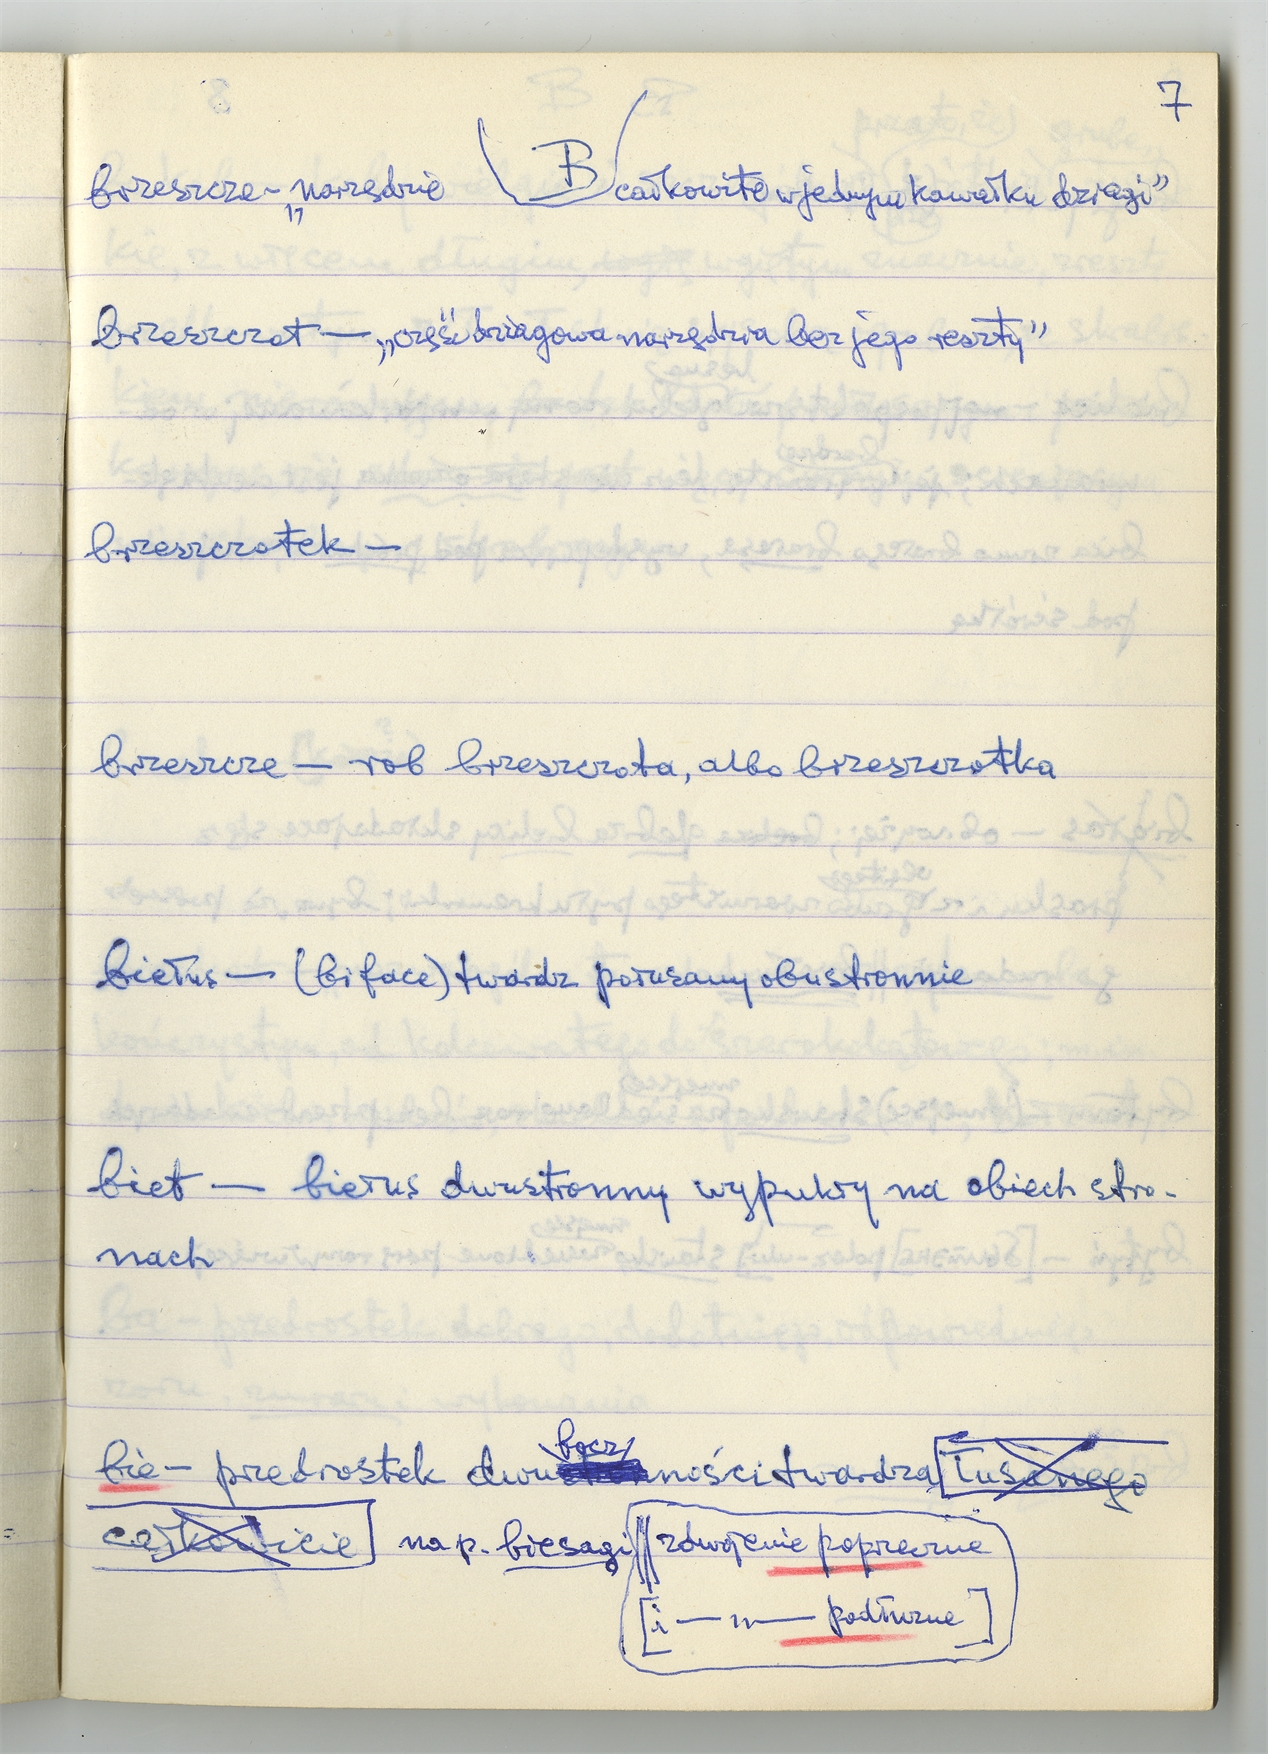 7
B
brzeszcze – „narzędzie całkowite w jednym kawałku dziagi”
brzeszczot — „część dziagowa narzędzia bez jego reszty”
brzeszczotek —
brzeszcze — rob brzeszczota, albo brzeszczotka
biełus — (biface) twardz porusany obustronnie
biet — biełus dwustronny wypukły na obiech stro-
nach
bie – przedrostek dwubocz̶ności twardza łusanego
całkowicie nap. biesagi || zdwojenie poprzeczne
[i — „ — podłużne]